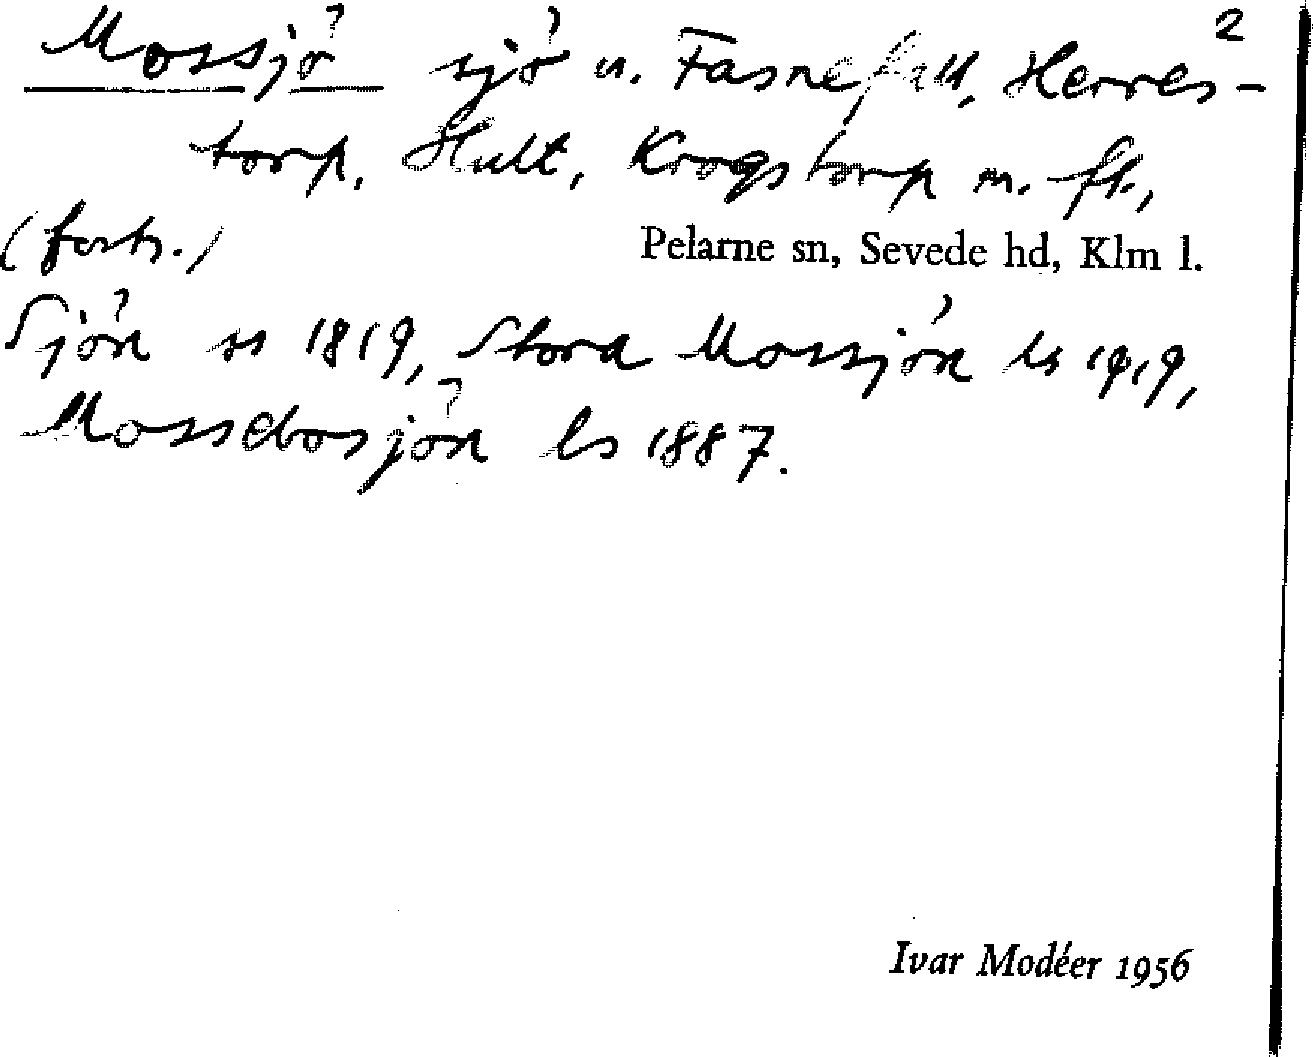 2
Mossjö sjö u. Fasnefall, Herres-
torp, Hult, Krogstorp m. fl.,
(forts.)
Pelarne sn, Sevede hd, Klm l.
Sjön ss 1819, Stora Mossjön ls 1919,
Mossebosjön ls 1887.
Ivar Modéer 1956